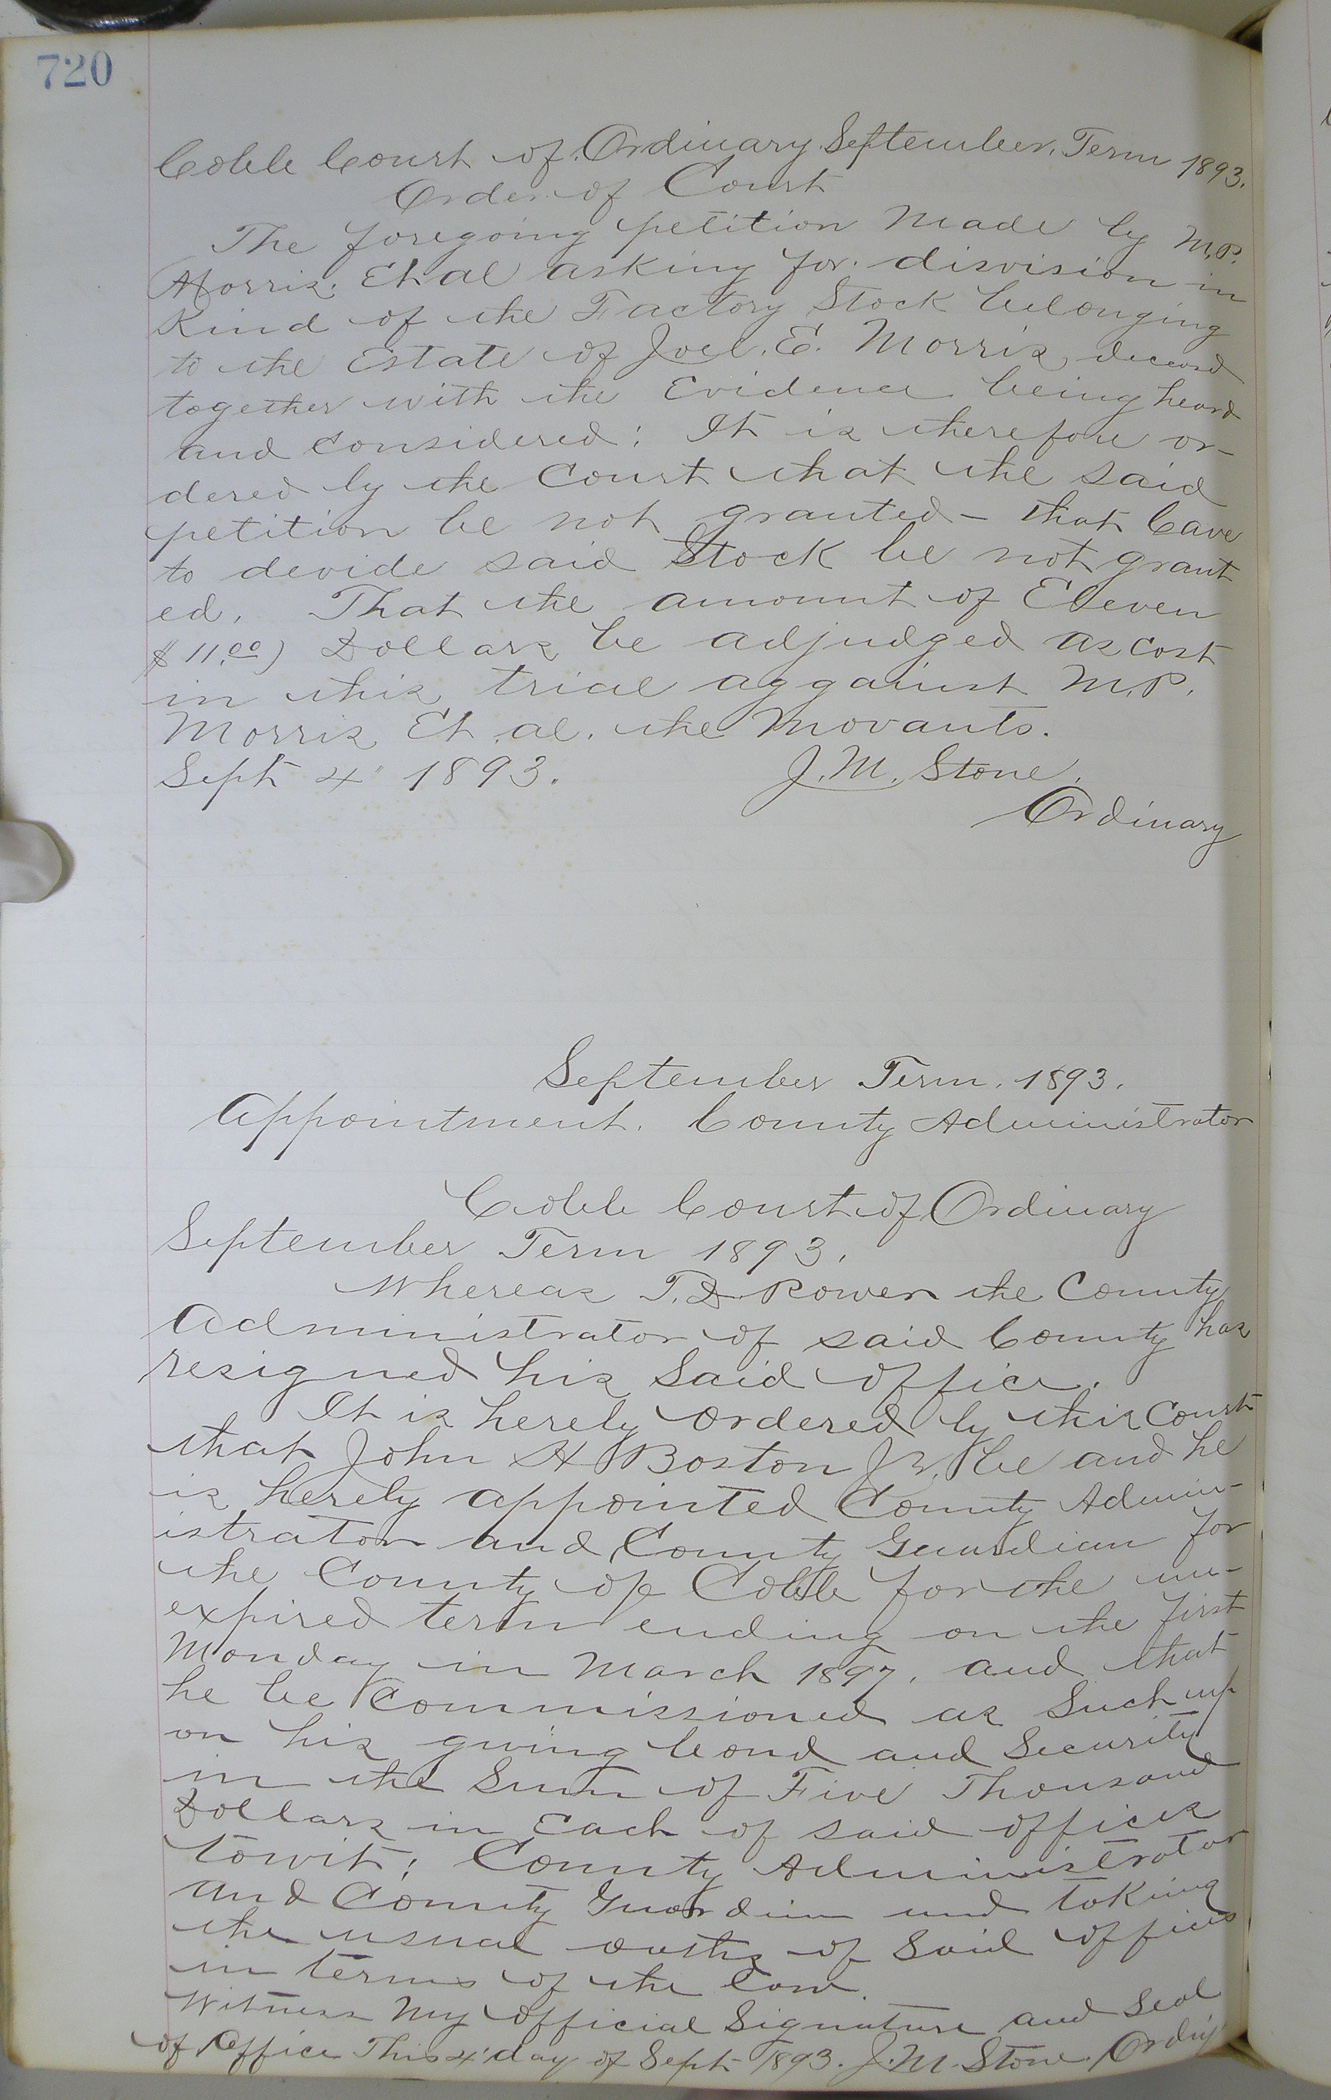 720
Cobb Court of Ordinary September Term 1893.
Order of Court
The foregoing petition made by M.P.
Morris Et al asking for disvision in
Kind of the Factory Stock belonging
to the Estate of Joel. E. Morris, deceasd
together with the Evidence being heard
and Considered: It is therefore or-
dered by the Court that the said
petition be not granted - that leave
to devide said Stock be not grant
ed. That the amount of Eleven
$11.00) Dollars be adjudged as cost
in this trial aggainst M.P.
Morris Et. al. the Movants.
Sept 4" 1893. J. M. Stone.
Ordinary
September Term. 1893.
Appointment. County Administrator
Cobb Court of Ordinary
September Term 1893.
Whereas T.D. Power the County
Administrator of said County has
resigned his said office.
It is hereby ordered by this Court
that John H Boston Jr. be and he
is hereby appointed County Admin-
istrator and County Guardian for
the County of Cobb for the un-
expired term ending on the first
Monday in March 1897. and that
he be Commissioned as Such up
on his giving bond and Security
in the Sum of Five Thousand
Dollars in Each of said offices
towit; County Administrator
and County Guardian and taking
the usual oaths of Said offices
in terms of the law.
Witness My Official Signature and Seal
of Office This 4" day of Sept 1893. J. M. Stone Ordiy